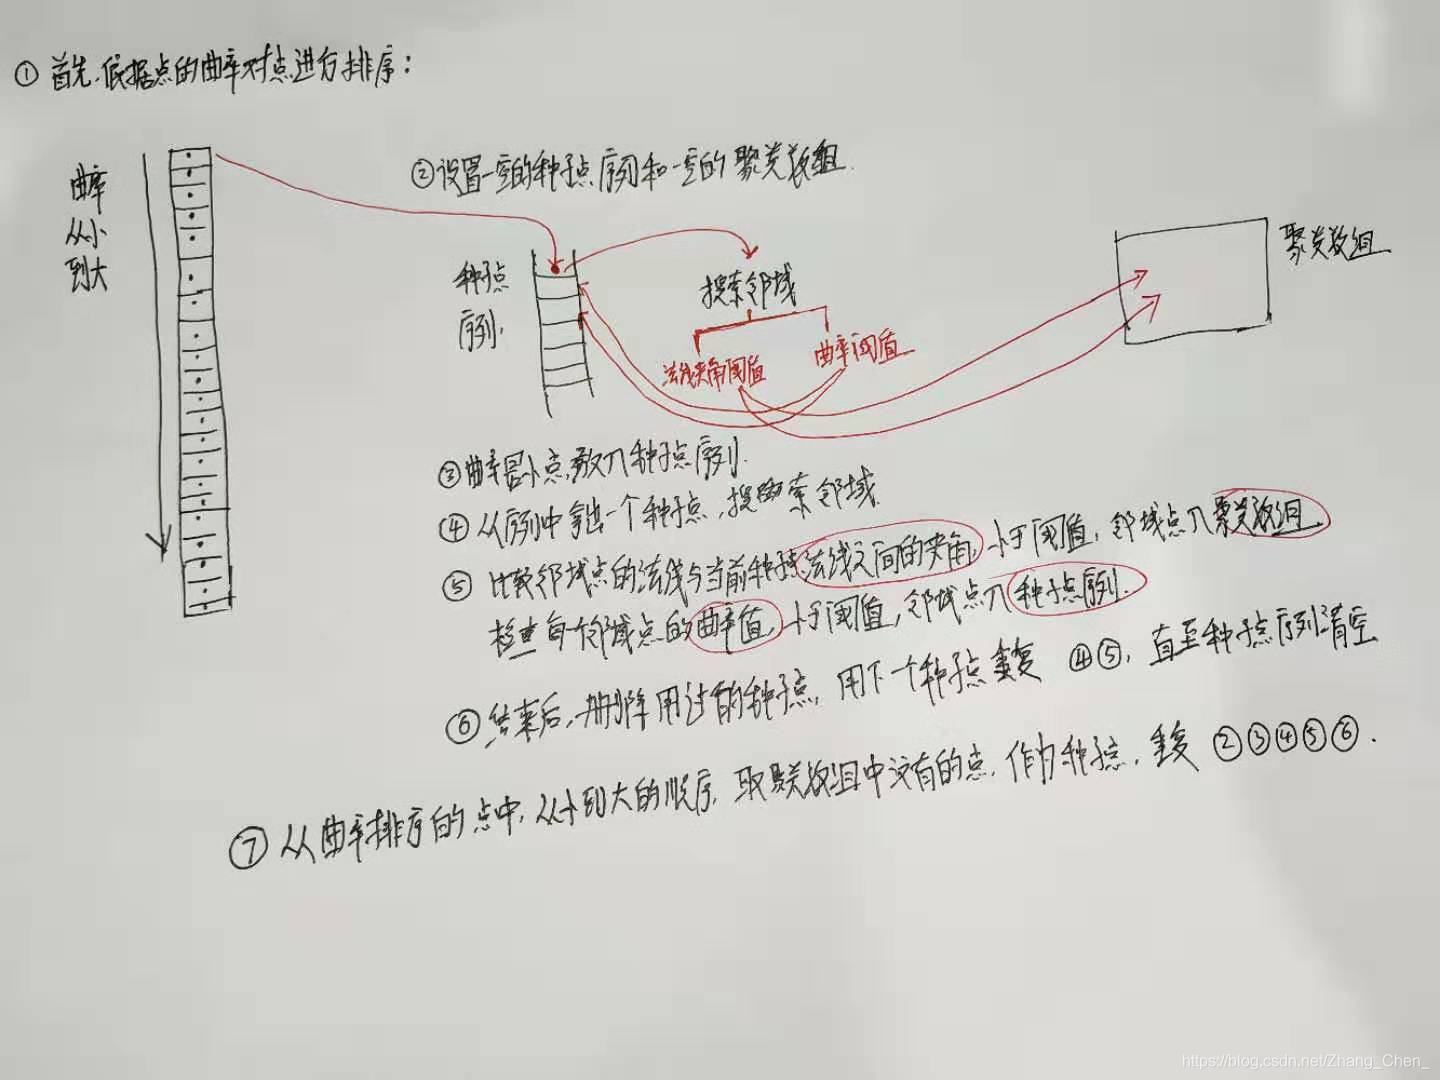 ① 首先,依据点的曲率对点进行排序:
曲率
从小
到大
② 设置一空的种子点序列和一空的聚类数组.
种子点
序列,
探索邻域
法线夹角阈值
曲率阈值
聚类数组
③ 曲率最小点,放入种子点序列.
④ 从序列中拿出一个种子点,搜索邻域.
⑤ 比较邻域点的法线与当前种子点法线之间的夹角,小于阈值,邻域点入聚类数组.
检查每个邻域点的曲率值,小于阈值,邻域点入种子点序列.
⑥ 结束后,删除用过的种子点,用下一个种子点重复 ④⑤,直至种子点序列清空
⑦ 从曲率排序的点中,从小到大的顺序,取聚类数组中没有的点,作为种子点,重复 ②③④⑤⑥.
https://blog.csdn.net/Zhang_Chen_